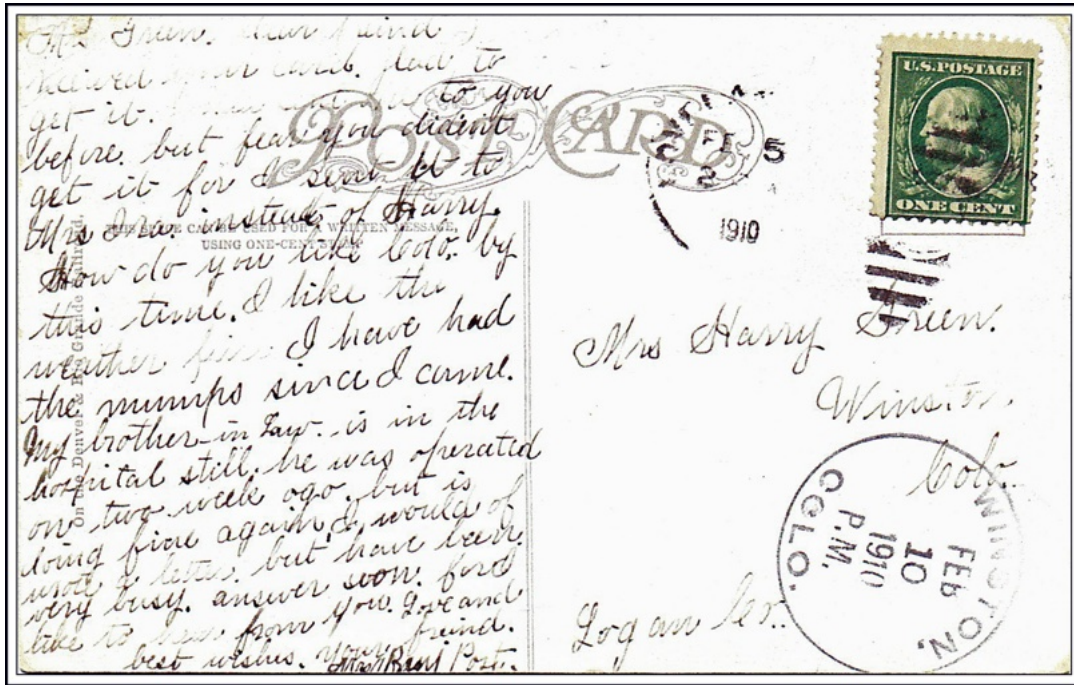 Mrs Green. Dear freind
Received your card. glad to
get it. to you
before. but fear you dident
get it for I sent it to
Mrs Ira. instead of Harry.
How do you like Colo. by
this time. I like the
weather fine I have had
the mumps since I came.
My brother-in Law. is in the
hospital still. he was operated
on two week ago. but is
doing fine again. I would of
wrote a letter. but have been
very busy. answer soon.
like to hear from you. Love and
best wishes. your freind.
Mrs Post.
POST CARD
THIS SPACE CAN BE USED FOR A WRITTEN MESSAGE,
USING ONE-CENT STAMP
On the Denver & Rio Grande Railroad.
5
2
1910
U.S. POSTAGE
ONE CENT
Mrs Harry Green.
Winston.
Colo.
Logan Co.
WINSTON,
FEB
10
1910
P.M.
COLO.